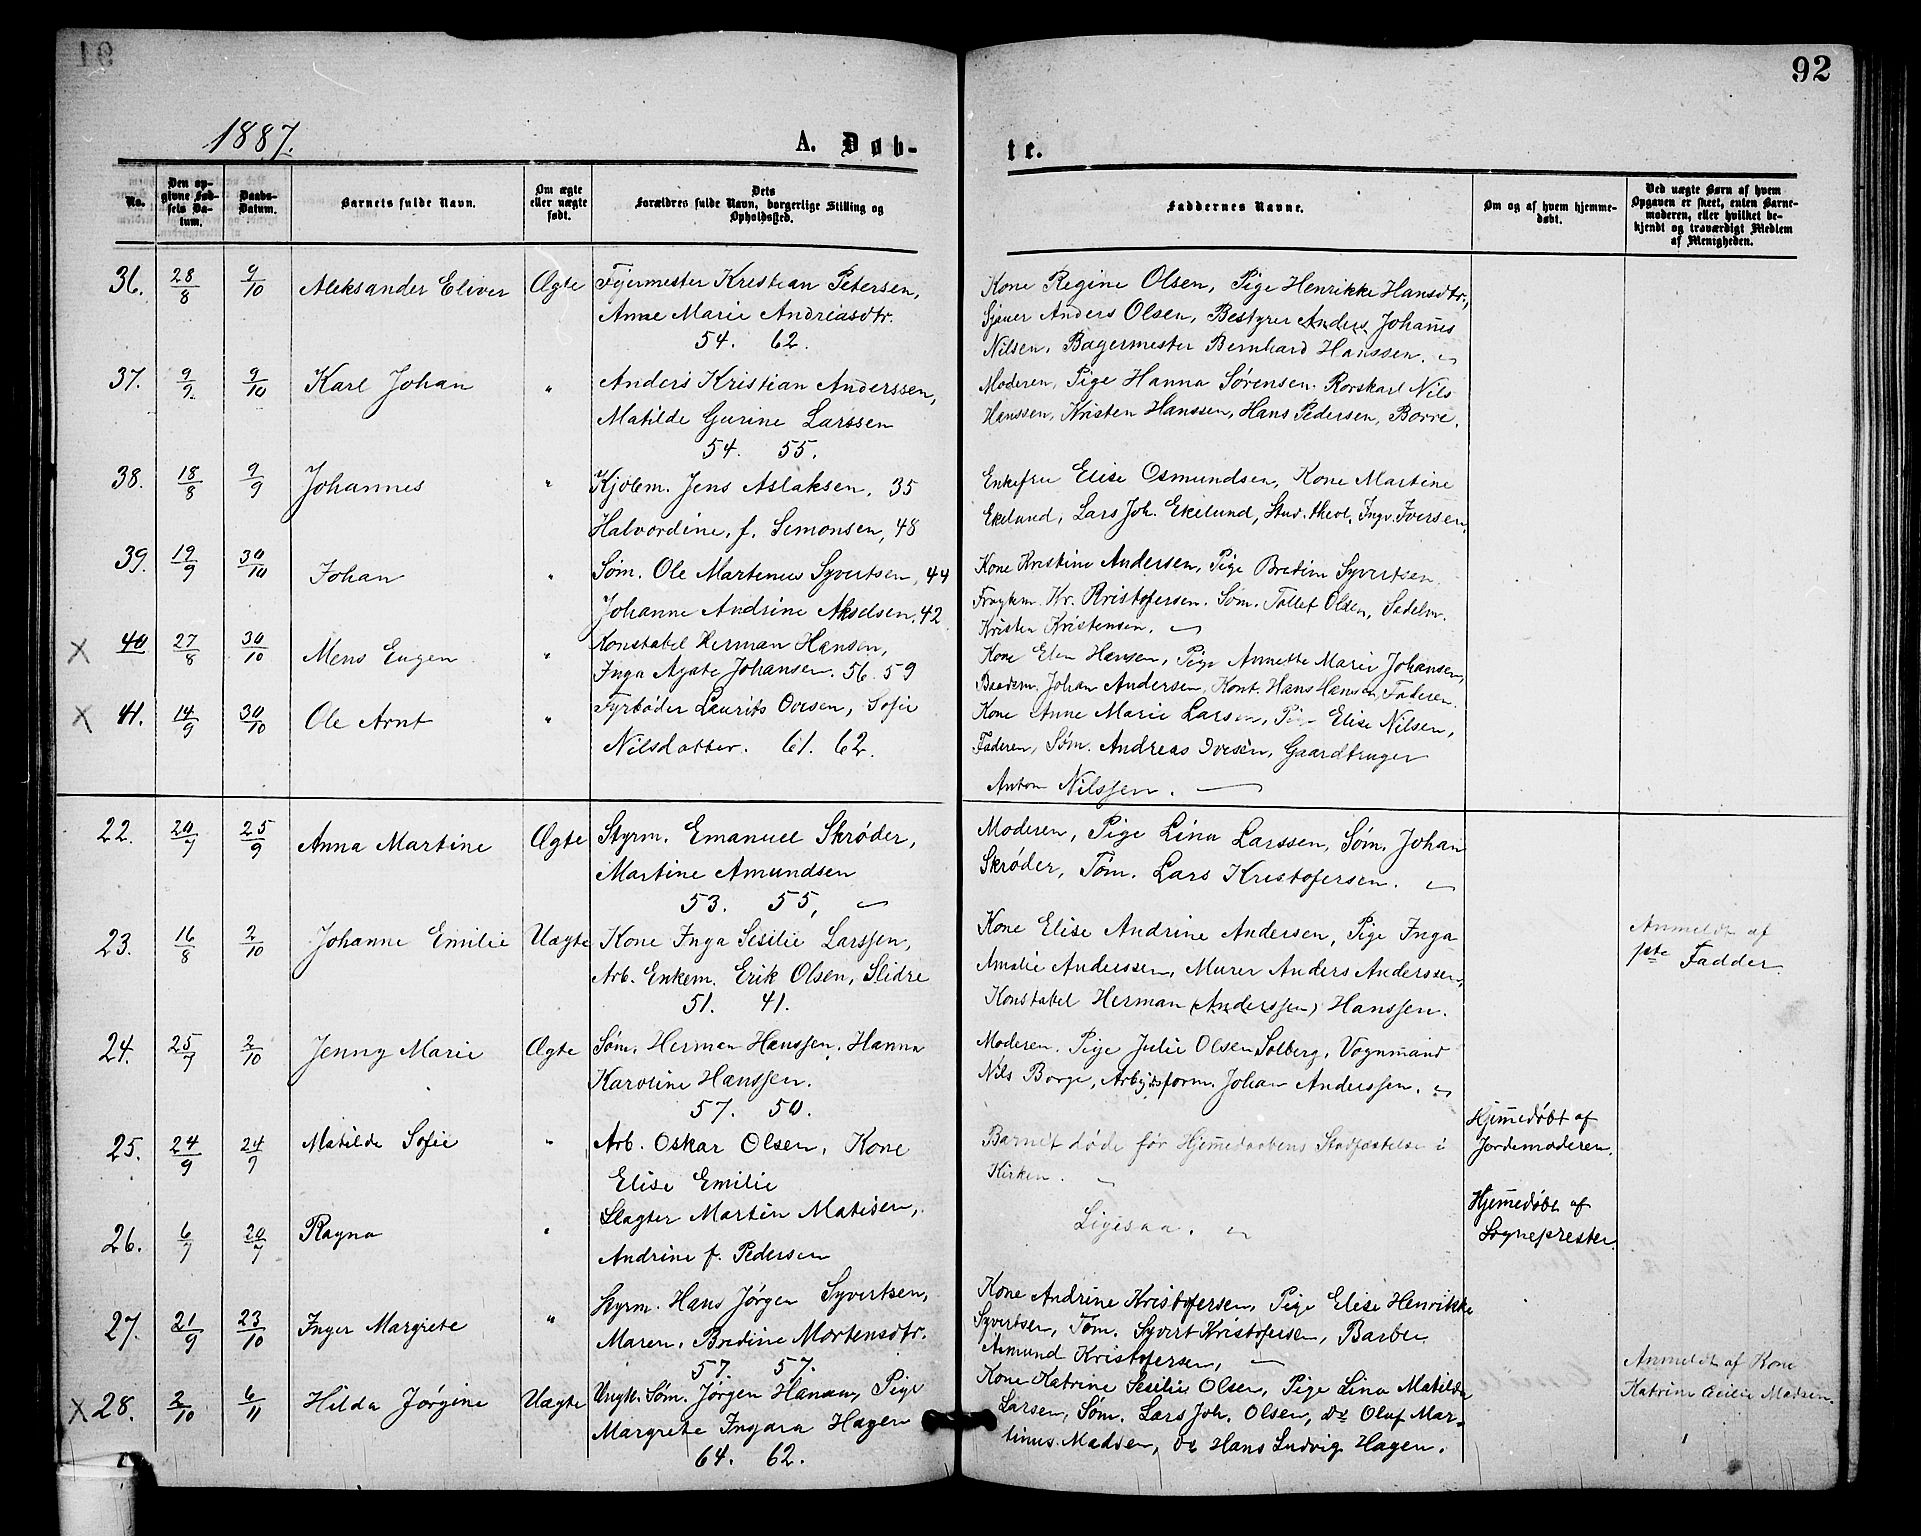 91
92
1887.
A. Døb-
te.
No.
Den op-
givne Fød-
sels Da-
tum.
Daabs-
Datum.
Barnets fulde Navn.
Om ægte
eller uægte
født.
Dets
Forældres fulde Navn, borgerlige Stilling og
Opholdssted.
Faddernes Navne.
Om og af hvem hjemme-
døbt.
Ved uægte Børn af hvem
Opgaven er skeet, enten Barne-
moderen, eller hvilket be-
kjendt og troværdigt Medlem
af Menigheden.
36. 28/8 9/10 Aleksander Eliver Ægte Fyermester Kristian Petersen,
Anne Marie Andriasdtr.
54. 62.
Kone Regine Olsen, Pige Henrikke Hansdtr,
Sjauer Anders Olsen, Bestyrer Anders Johannes
Nilsen, Bagermester Bernhard Hanssen.
37. 9/9 9/10 Karl Johan " Anders Kristian Anderssen,
Matilde Gurine Larssen
54. 55.
Moderen, Pige Hanna Sørensen. Rorskarl Nils
Hanssen, Kristen Hanssen, Hans Pedersen, Borre.
38. 18/8 9/9 Johannes " Kjøbm. Jens Aslaksen, 35
Halvordine, f. Simonsen, 48
Enkefru Elise Osmundsen, Kone Martine
Ekelund, Lars Joh. Ekelund, Stud. theol. Ingv. Iversen,
39. 19/9 30/10 Johan " Søm. Ole Martenius Syvertsen, 44
Johanne Andrine Akselsen, 42
Kone Kristine Andersen, Pige Bredine Syvertsen
Kr. Kristofersen. Søm. Tollef Olsen, Sadelm.
Kristen Kristensen.
X 40 27/8 30/10 Mens Eugen " Konstabel Herman Hansen,
Inga Agate Johansen. 56. 59
Kone Elen Hansen, Pige Annette Marie Johansen,
Baadsm. Johan Andersen, Kont. Hans Hansen, Faderen.
X 41. 14/9 30/10 Ole Arnt " Fyrbøder Laurits Oversen, Sofie
Nilsdatter. 61. 62.
Kone Anne Marie Larsen, Pige Elise Nilsen,
Faderen, Søm. Andreas Iversen, Gaardbruger
Anton Nilssen.
22. 20/7 25/9 Anna Martine Ægte Styrm. Emanuel Skrøder,
Martine Amundsen
53. 55,
Moderen, Pige Lina Larssen, Søm. Johan
Skrøder, Tøm. Lars Kristofersen.
23. 16/8 2/10 Johanne Emilie Uægte Kone Inga Sesilie Larssen,
Arb. Enkem. Erik Olsen, Slidre
51. 41.
Kone Elise Andrine Andersen, Pige Inga
Amalie Anderssen, Murer Anders Anderssen,
Konstabel Herman (Anderssen) Hanssen.
Anmeldt af
1ste Fadder.
24. 25/7 2/10 Jenny Marie Ægte Søm. Herman Hanssen, Hanna
Karoline Hanssen.
57. 50.
Moderen. Pige Julie Olsen Solberg, Vognmand
Nils Borge, Arbejdsform. Johan Anderssen.
25. 24/9 24/9 Matilde Sofie " Arb. Oskar Olsen, Kone
Elise Emilie
Barnet døde før Hjemmedaabens Stadfæstelse i
Kirken.
Hjemmedøbt af
Jordemoderen.
26. 6/7 20/7 Ragna " Slagter Martin Matisen,
Andrine f. Pedersen
Ligesaa.
Hjemmedøbt af
Sognepresten.
27. 21/9 23/10 Inger Margrete " Styrm. Hans Jørgen Syvertsen,
Maren, Bredine Mortensdtr.
57. 57.
Kone Andrine Kristofersen, Pige Elise Henrikke
Syvertsen, Tøm. Syvert Kristofersen, Barber
Amund Kristofersen,
X 28. 2/10 6/11 Hilda Jørgine Uægte Ungk. Søm. Jørgen Hansen, Pige
Margrete Ingara Hagen
64. 62.
Kone Katrine Sesilie Olsen, Pige Lina Matilda
Larsen, Søm. Lars Joh. Olsen, do Oluf Mar-
tinus Madsen, do Hans Ludvig Hagen.
Anmeldt af Kone
Katrine Cecilie Madsen